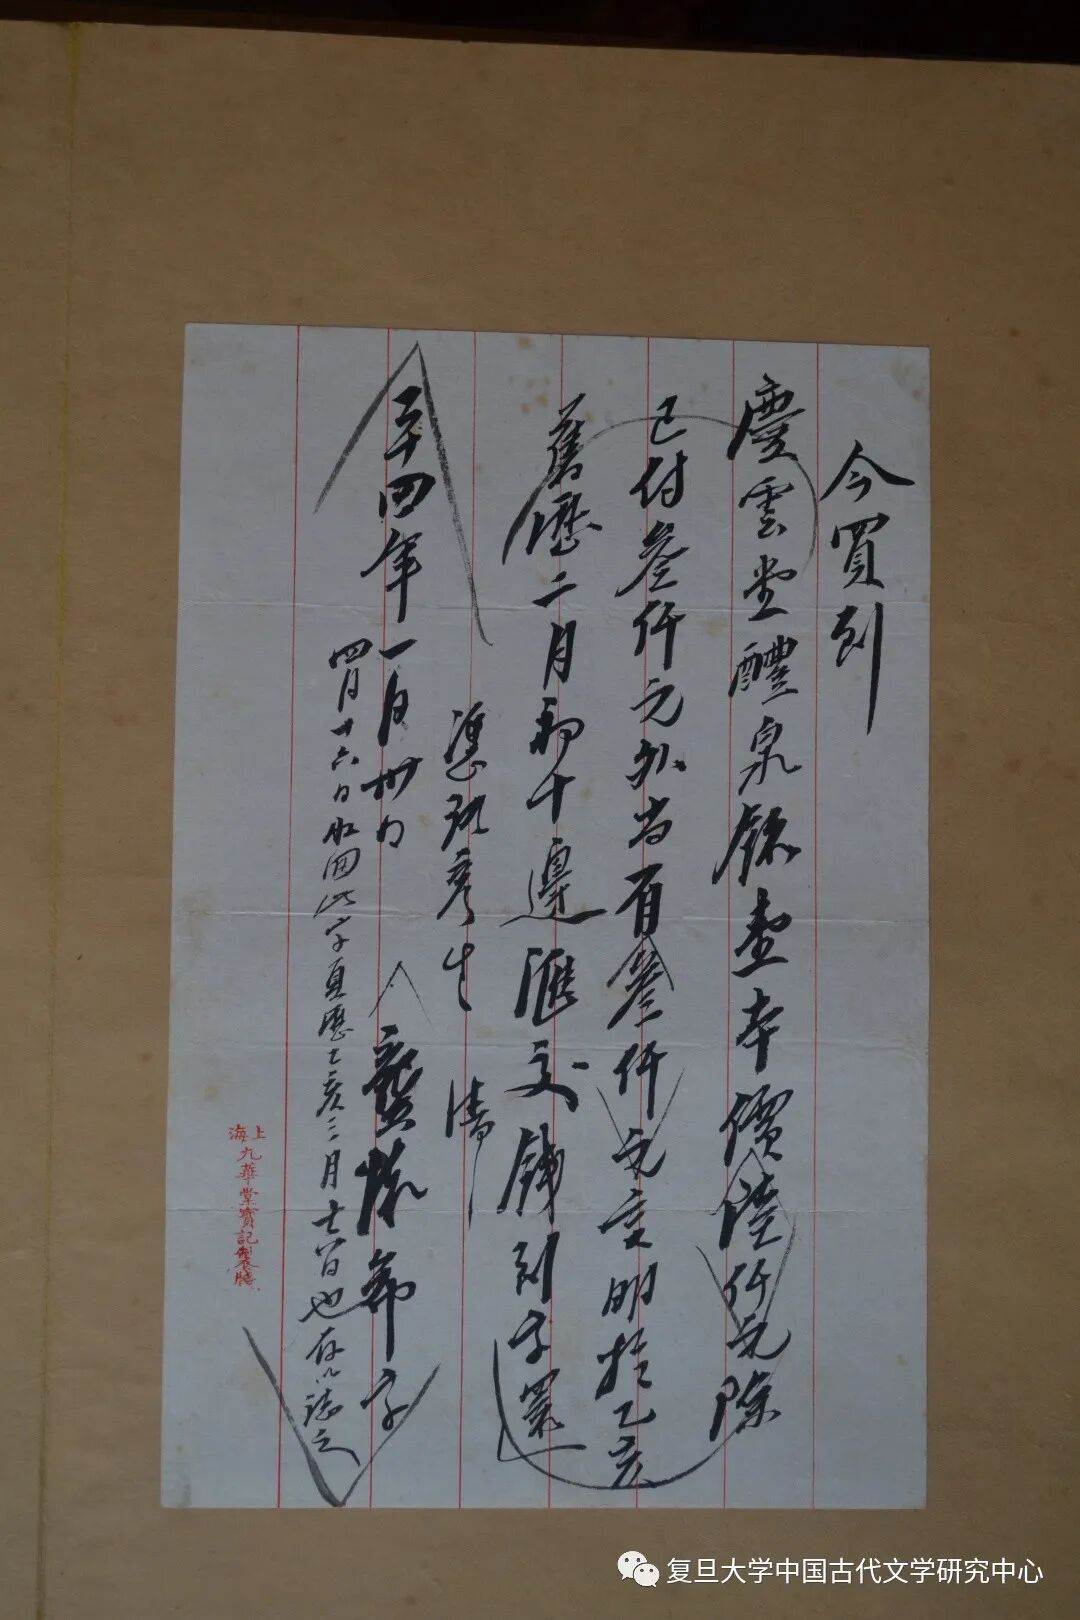 今買到
慶雲堂醴泉銘壹本價陸仟元除
已付叁仟元外尚有叁仟元言明於乙亥
舊歷二月初十邊匯交錢到字還
憑 彥生 清
二十四年一月卅日 龔 字
四月廿六日收回此字頁歷乙亥三月廿四日也存以誌之
上海九華堂寶記製牋
复旦大学中国古代文学研究中心